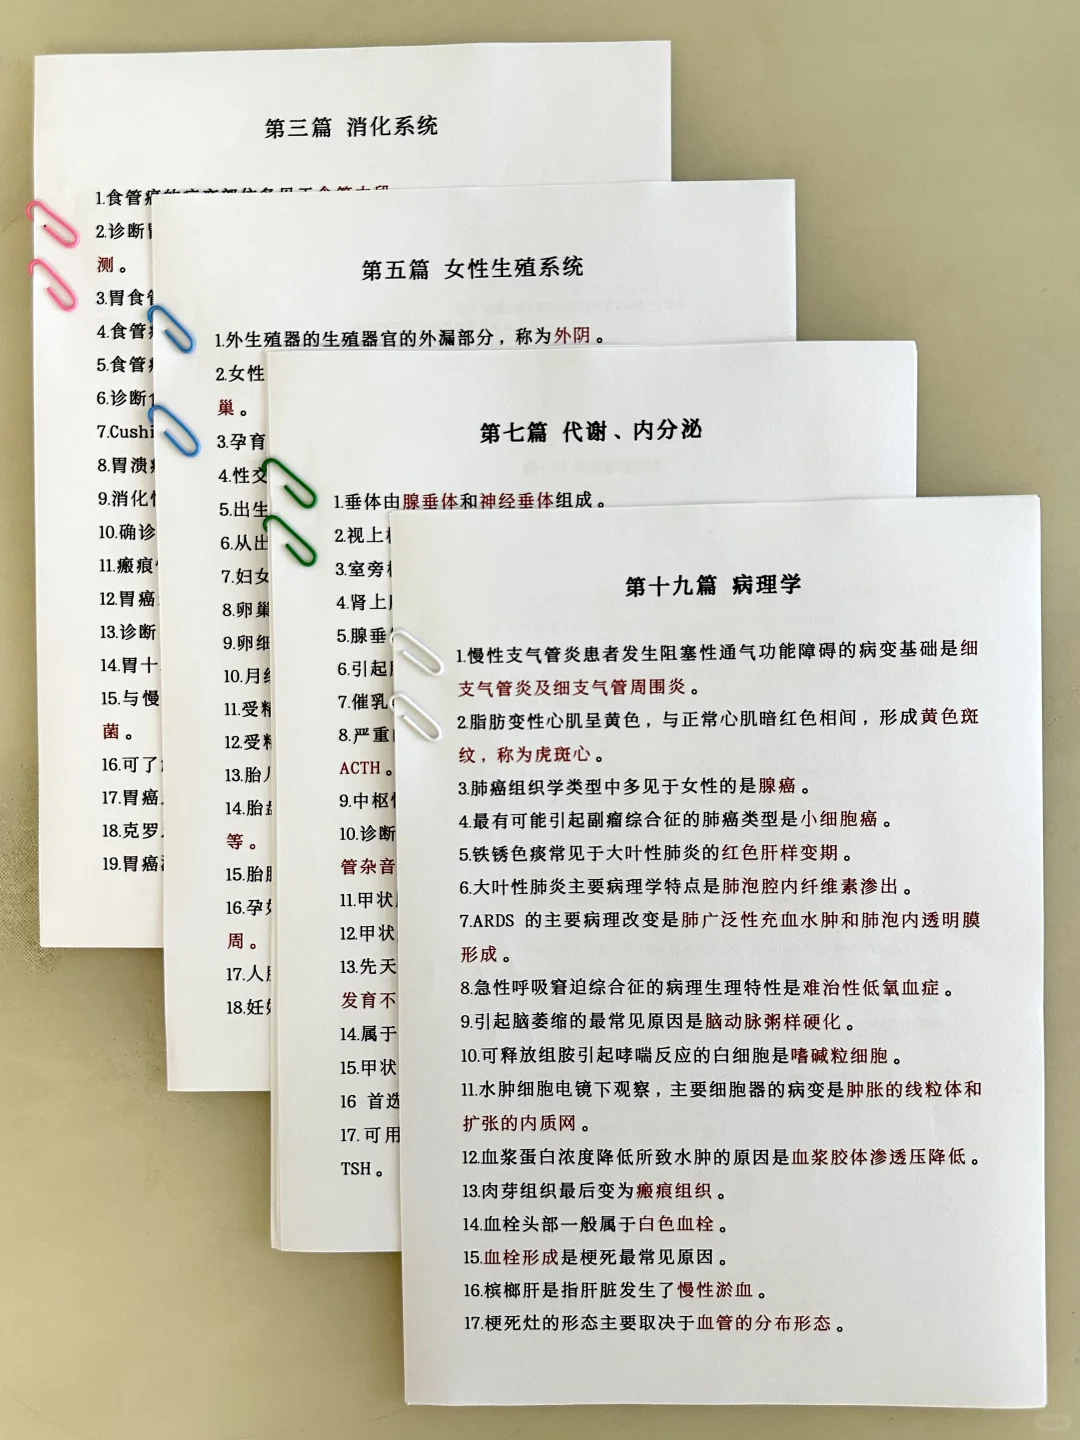 第三篇 消化系统
1.食管癌的病变部位多见于食管中段
2.诊断胃
测。
3.胃食管
4.食管
5.食管
6.诊断
7.Cushi
8.胃溃疡
9.消化性
10.确诊
11.瘢痕
12.胃癌
13.诊断
14.胃十
15.与慢
菌。
16.可了
17.胃癌
18.克罗
19.胃癌
第五篇 女性生殖系统
1.外生殖器的生殖器官的外漏部分，称为外阴。
2.女性
巢。
3.孕育
4.性交
5.出生
6.从出
7.妇女
8.卵巢
9.卵细
10.月经
11.受精
12.受精
13.胎儿
14.胎盘
等。
15.胎
16.孕妇
周。
17.人
18.妊娠
第七篇 代谢、内分泌
1.垂体由腺垂体和神经垂体组成。
2.视上
3.室旁
4.肾上
5.腺垂
6.引起
7.催乳
8.严重
ACTH。
9.中枢
10.诊断
管杂音
11.甲状
12.甲状
13.先天
发育不
14.属于
15.甲状
16 首选
17.可用
TSH。
第十九篇 病理学
1.慢性支气管炎患者发生阻塞性通气功能障碍的病变基础是细
支气管炎及细支气管周围炎。
2.脂肪变性心肌呈黄色，与正常心肌暗红色相间，形成黄色斑
纹，称为虎斑心。
3.肺癌组织学类型中多见于女性的是腺癌。
4.最有可能引起副瘤综合征的肺癌类型是小细胞癌。
5.铁锈色痰常见于大叶性肺炎的红色肝样变期。
6.大叶性肺炎主要病理学特点是肺泡腔内纤维素渗出。
7.ARDS 的主要病理改变是肺广泛性充血水肿和肺泡内透明膜
形成。
8.急性呼吸窘迫综合征的病理生理特性是难治性低氧血症。
9.引起脑萎缩的最常见原因是脑动脉粥样硬化。
10.可释放组胺引起哮喘反应的白细胞是嗜碱粒细胞。
11.水肿细胞电镜下观察，主要细胞器的病变是肿胀的线粒体和
扩张的内质网。
12.血浆蛋白浓度降低所致水肿的原因是血浆胶体渗透压降低。
13.肉芽组织最后变为瘢痕组织。
14.血栓头部一般属于白色血栓。
15.血栓形成是梗死最常见原因。
16.槟榔肝是指肝脏发生了慢性淤血。
17.梗死灶的形态主要取决于血管的分布形态。